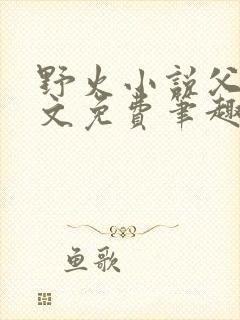 野火小说父
文免费笔趣
鱼歌